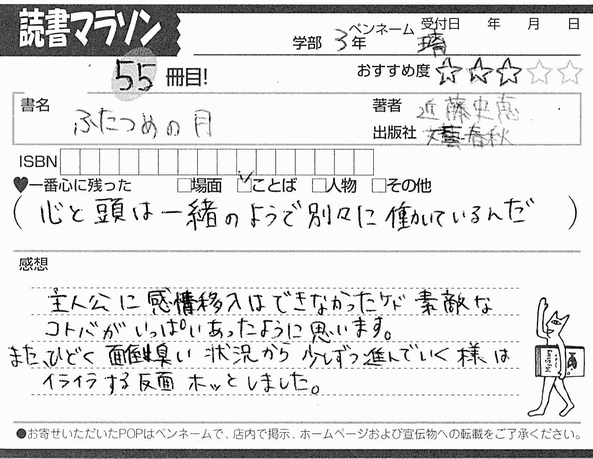 読書マラソン
学部 3年 ペンネーム 受付日 年 月 日
55冊目!
おすすめ度 ☆☆☆☆☆
書名
ふたつめの月
著者 近藤史恵
出版社 文藝春秋
ISBN
♥一番心に残った □場面 □ことば □人物 □その他
(心と頭は一緒のようで別々に働いているんだ)
感想
主人公に感情移入はできなかったケド 素敵な
コトバがいっぱいあったように思います。
また、ひどく面倒臭い状況から少しずつ進んでいく様は
イライラする反面ホッとしました。
●お寄せいただいたPOPはペンネームで、店内で掲示、ホームページおよび宣伝物への転載をご了承ください。